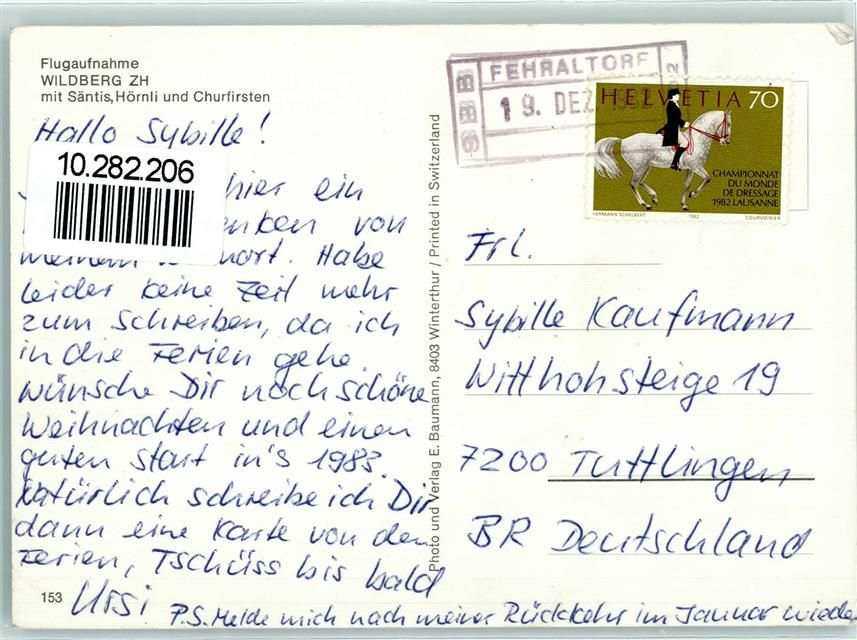 Flugaufnahme
WILDBERG ZH
mit Säntis, Hörnli und Churfirsten
Hallo Sybille!
10.282.206
hier ein
von
Habe
leider keine Zeit mehr
zum Schreiben, da ich
in die Ferien gehe.
Wünsche Dir noch schöne
Weihnachten und einen
guten Start in's 1983.
Natürlich schreibe ich Dir
dann eine Karte von den
Ferien, Tschüss bis bald
Ursi
P.S. Melde mich nach meiner Rückkehr im Januar wieder
153
Photo und Verlag E. Baumann, 8403 Winterthur / Printed in Switzerland
SBB
FEHRALTORF
19. DEZ
HELVETIA 70
CHAMPIONNAT
DU MONDE
DE DRESSAGE
1982 LAUSANNE
HERMANN SCHELBERT 1982 COURVOISIER
Frl.
Sybille Kaufmann
Witthohsteige 19
7200 Tuttlingen
BR Deutschland